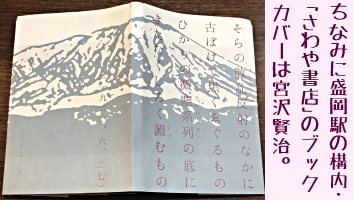 ちなみに盛岡駅の構内・
「さわや書店」のブック
カバーは宮沢賢治。
そらの散乱反射のなかに
古ぼけて黒くゑぐるもの
ひかりの微塵系列の底に
きたなくしろく澱むもの
九 、六、二七)